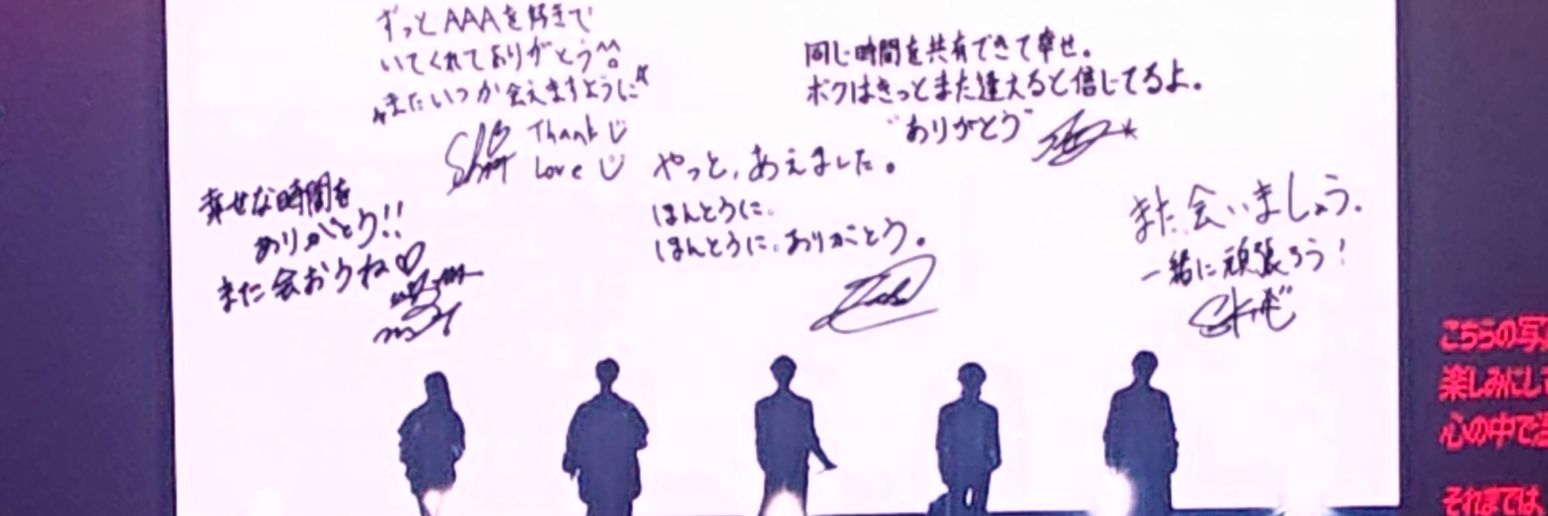 ずっとAAAを好きで
いてくれてありがとう^^。
またいつか会えますように
Thank
Love
同じ時間を共有できて幸せ。
ボクはきっとまた逢えると信じてるよ。
"ありがとう"
幸せな時間を
ありがとう!!
また会おうね♡
やっと、あえました。
ほんとうに。
ほんとうに、ありがとう。
また会いましょう。
一緒に頑張ろう!
こちらの写
楽しみにして
心の中で
それまでは、